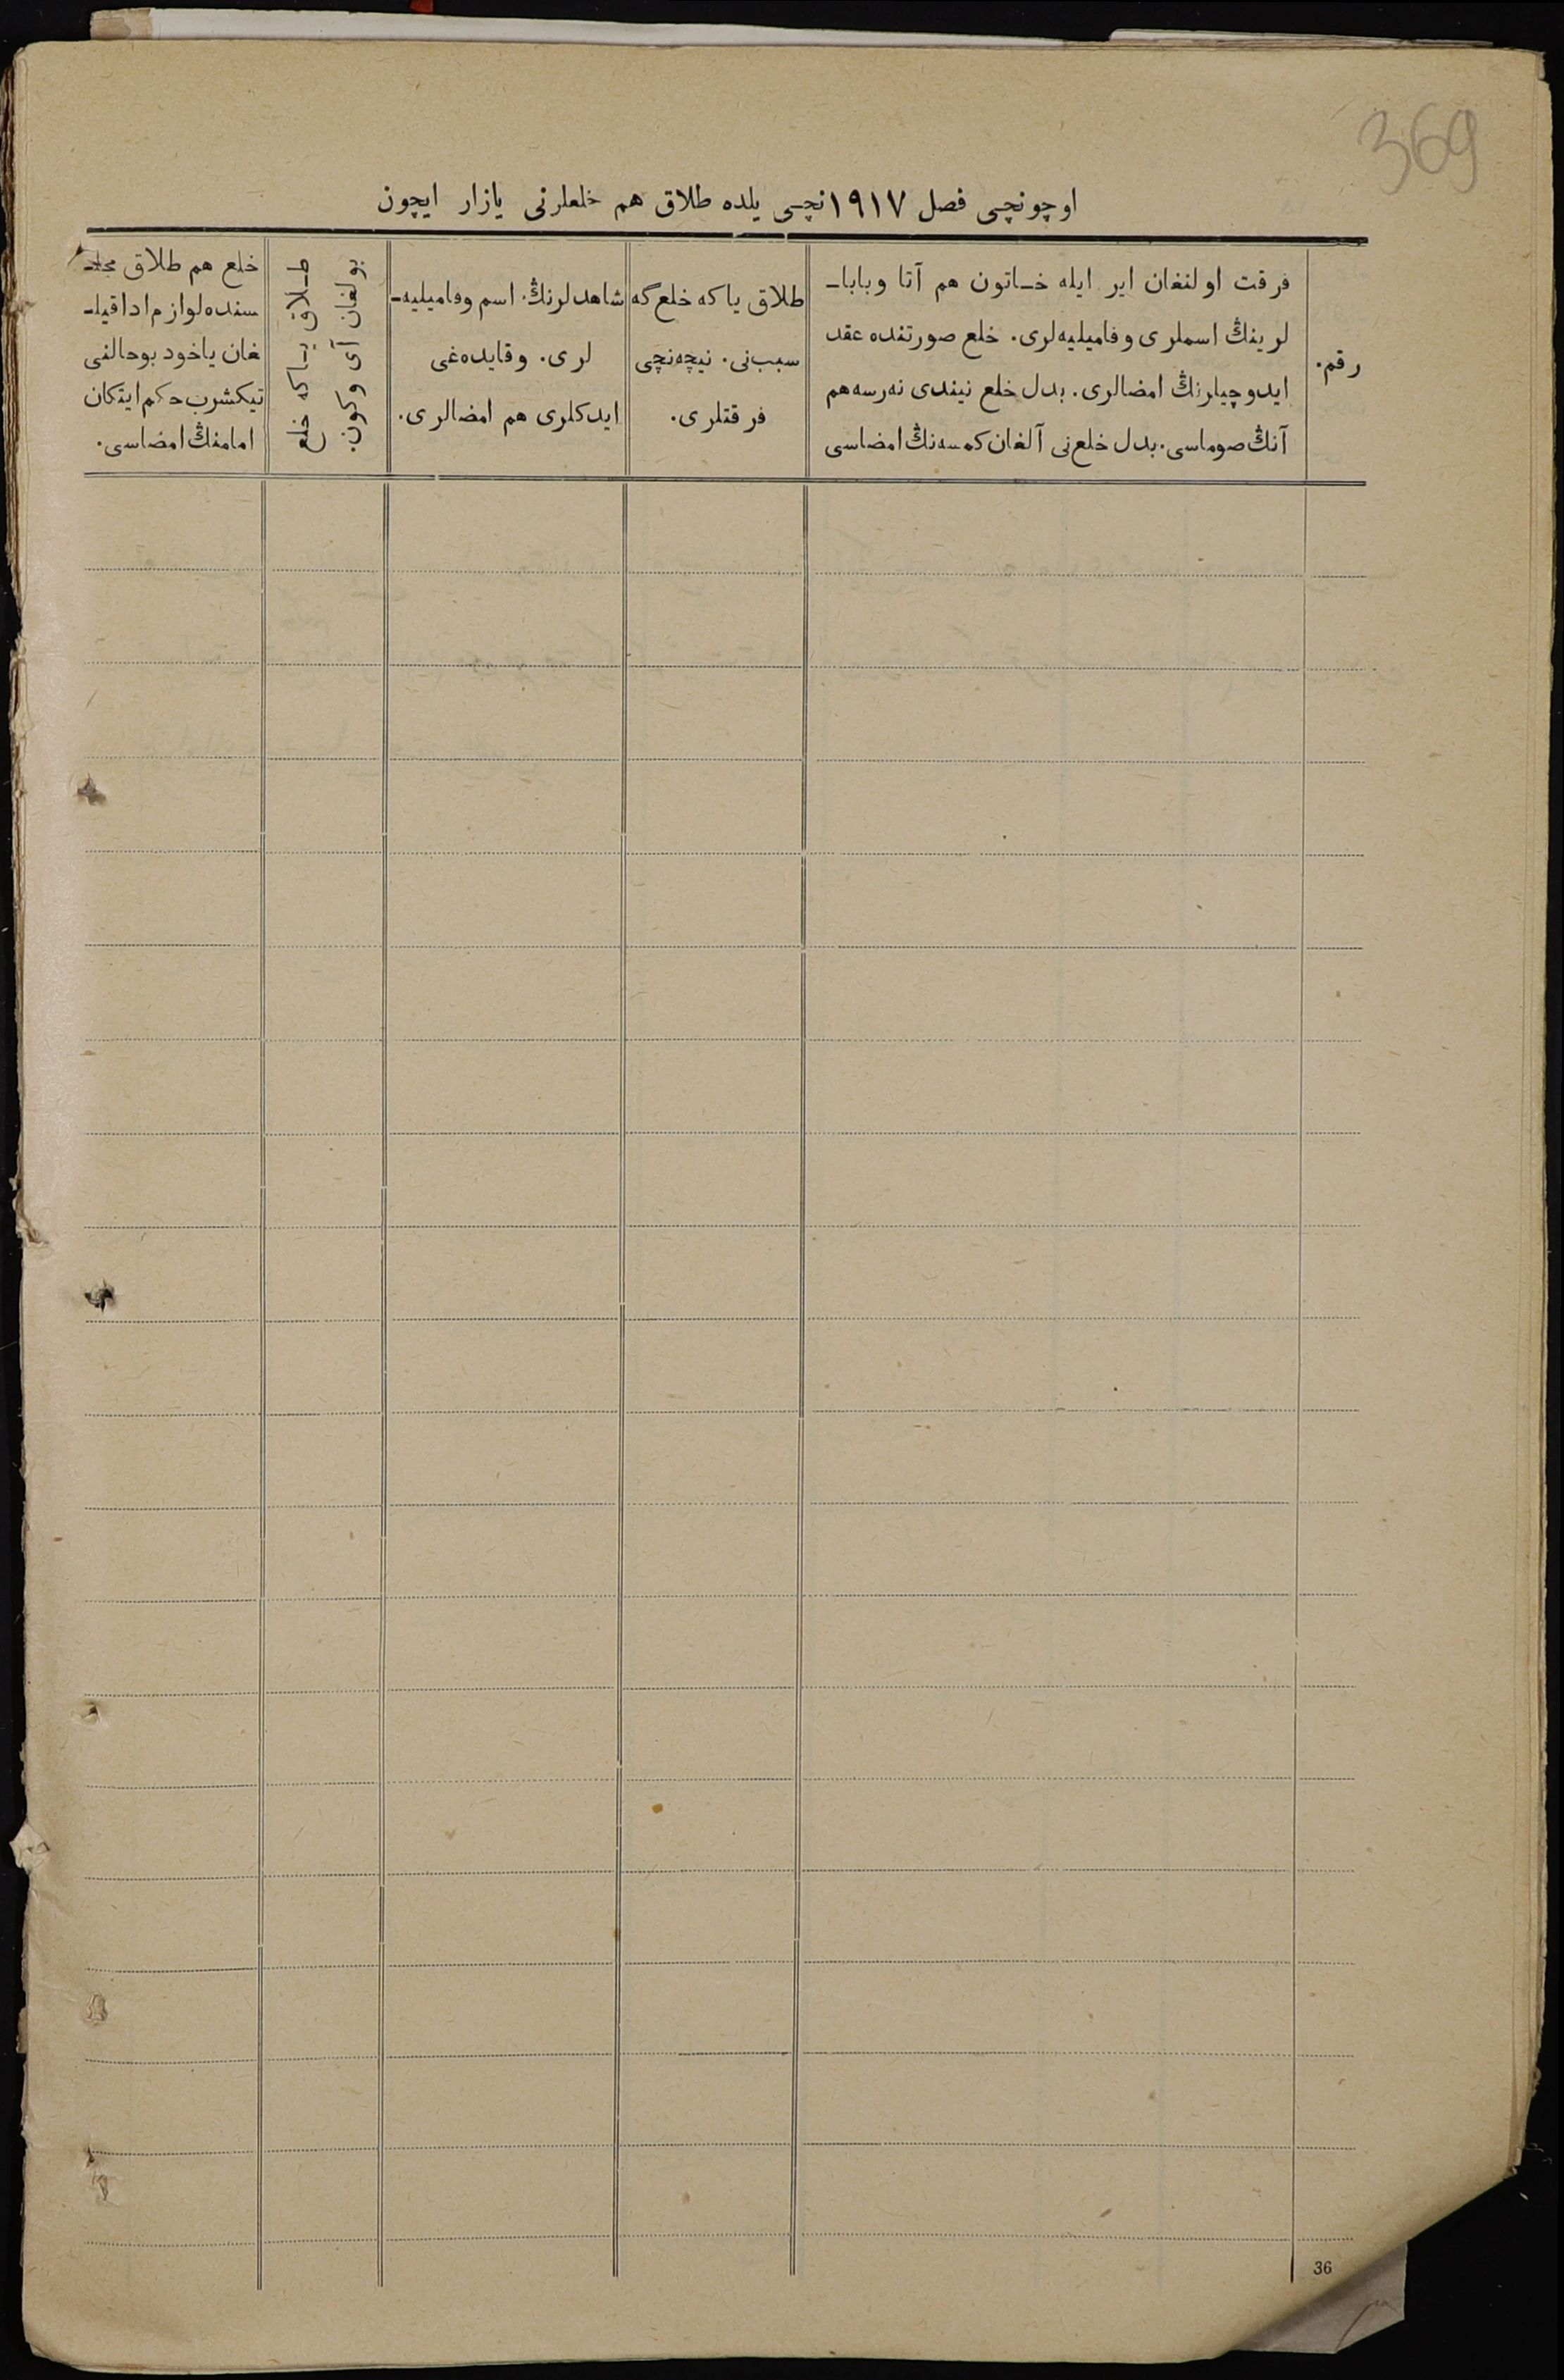 369
اوچونچی فصل ١٩١٧نچی یلده طلاق هم خلعلرنی یازار ایچون
رقم.
فرقت اولنغان ایر ایله خـاتون هم آتا وبابا‌ـ
لرینڭ اسملری وفامیلیه‌لری. خلع صورتنده عقد
ایدوچیلرنڭ امضالری. بدل خلع نیندی نه‌رسه هم
آنڭ صوماسی. بدل خلع‌نی آلغان کمسه‌نڭ امضاسی
طلاق یاکه خلع‌گه
سبب‌نی. نیچه‌نچی
فرقتلری.
شاهدلرنڭ اسم وفامیلیه‌ـ
لری. وقایده‌غی
ایدکلری هم امضالری.
طـلاق یـاکه خلع
بولغان آی وکون.
خلع هم طلاق مجلـ
سنده لوازم ادا قیلـ
غان یاخود بوحالنی
تیکشرب حکم ایتکان
امامنڭ امضاسی.
36